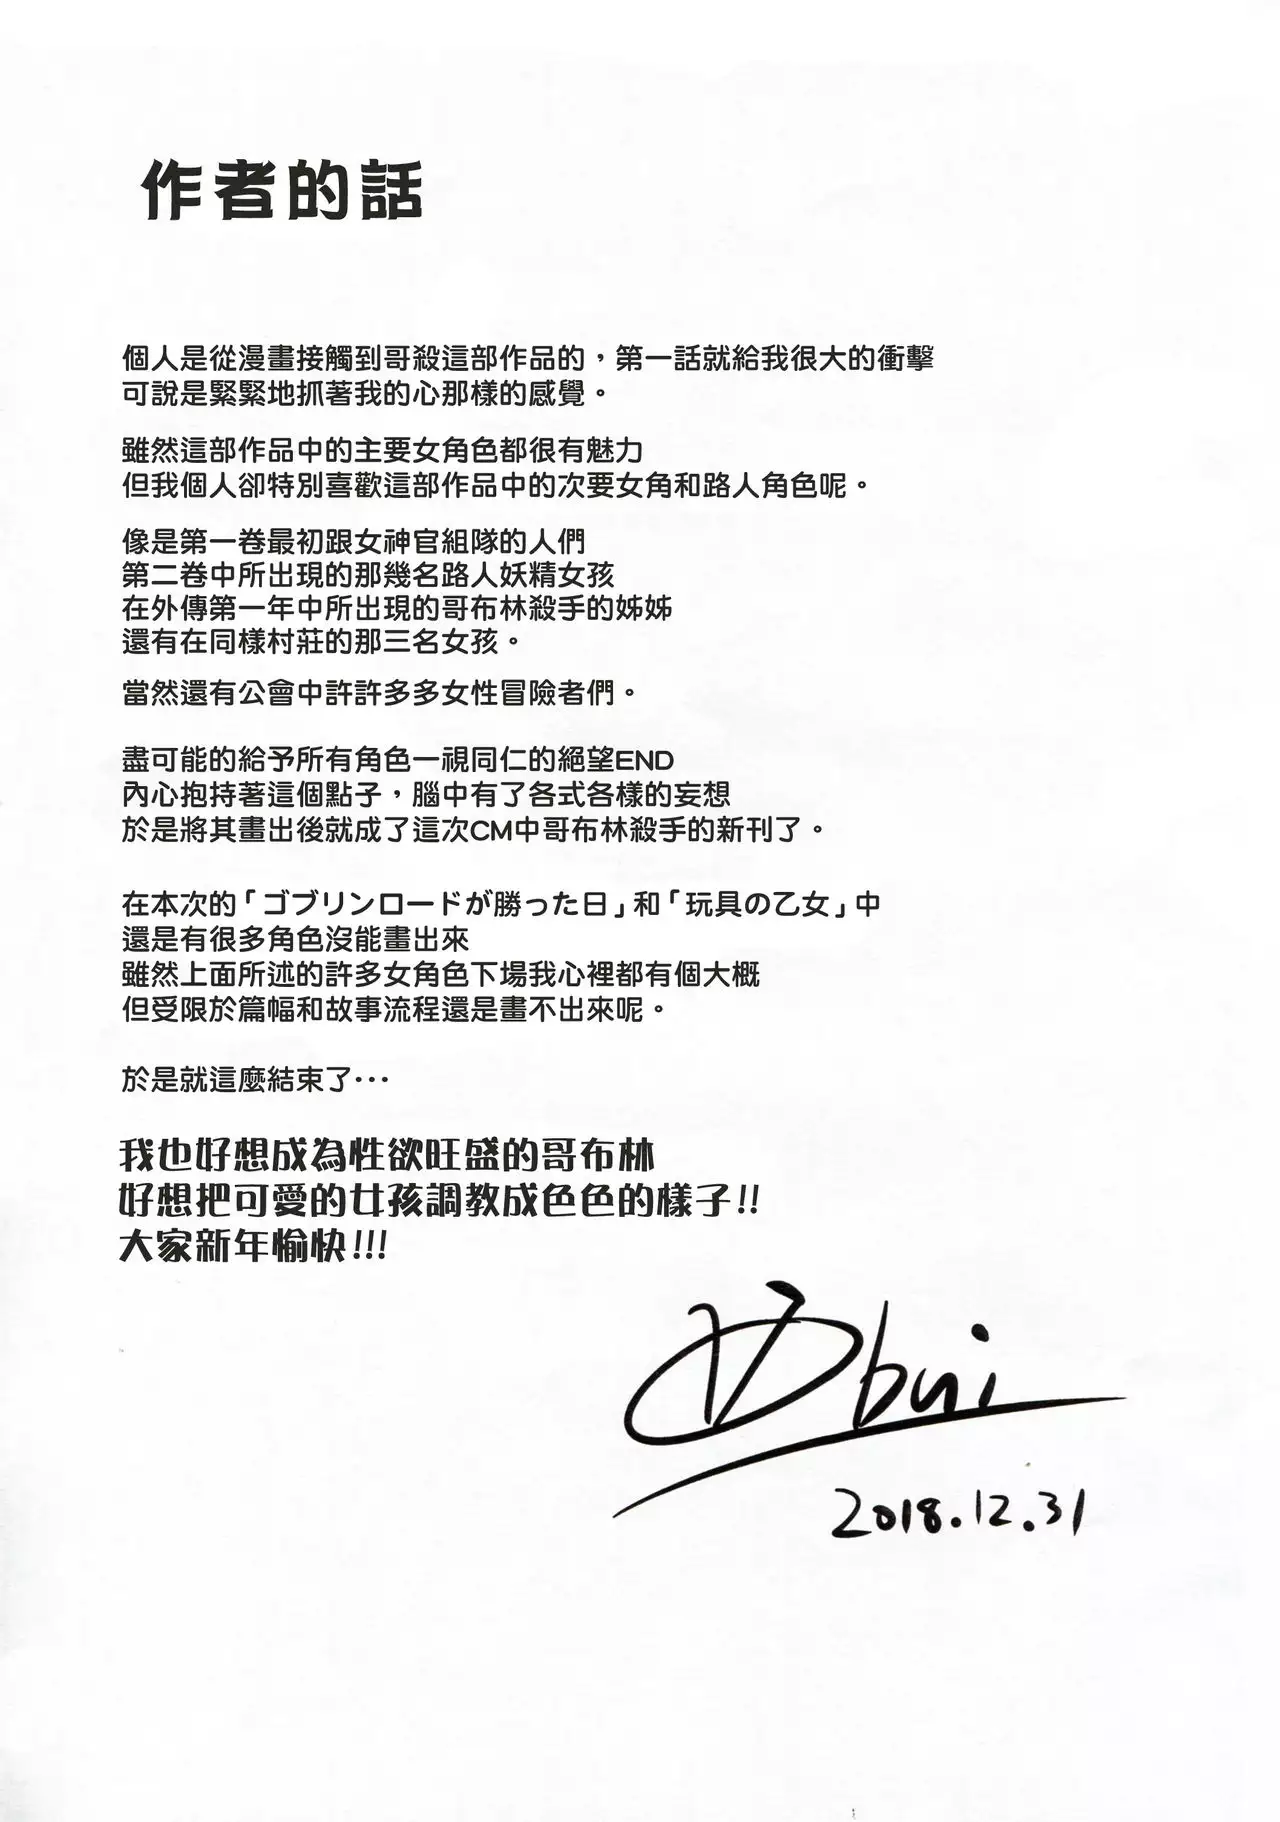 作者的話
個人是從漫畫接觸到哥殺這部作品的，第一話就給我很大的衝擊
可說是緊緊地抓著我的心那樣的感覺。
雖然這部作品中的主要女角色都很有魅力
但我個人卻特別喜歡這部作品中的次要女角和路人角色呢。
像是第一卷最初跟女神官組隊的人們
第二卷中所出現的那幾名路人妖精女孩
在外傳第一年中所出現的哥布林殺手的姊姊
還有在同樣村莊的那三名女孩。
當然還有公會中許許多多女性冒險者們。
盡可能的給予所有角色一視同仁的絕望END
內心抱持著這個點子，腦中有了各式各樣的妄想
於是將其畫出後就成了這次CM中哥布林殺手的新刊了。
在本次的「ゴブリンロードが勝った日」和「玩具の乙女」中
還是有很多角色沒能畫出來
雖然上面所述的許多女角色下場我心裡都有個大概
但受限於篇幅和故事流程還是畫不出來呢。
於是就這麼結束了･･･
我也好想成為性欲旺盛的哥布林
好想把可愛的女孩調教成色色的樣子!!
大家新年愉快!!!
bui
2018.12.31